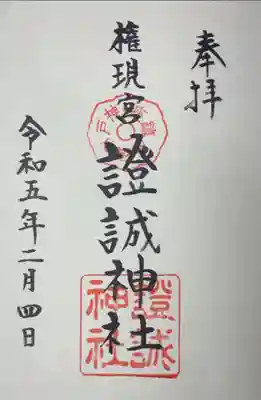 奉拝
権現宮
證誠神社
令和五年二月四日
證誠
神社